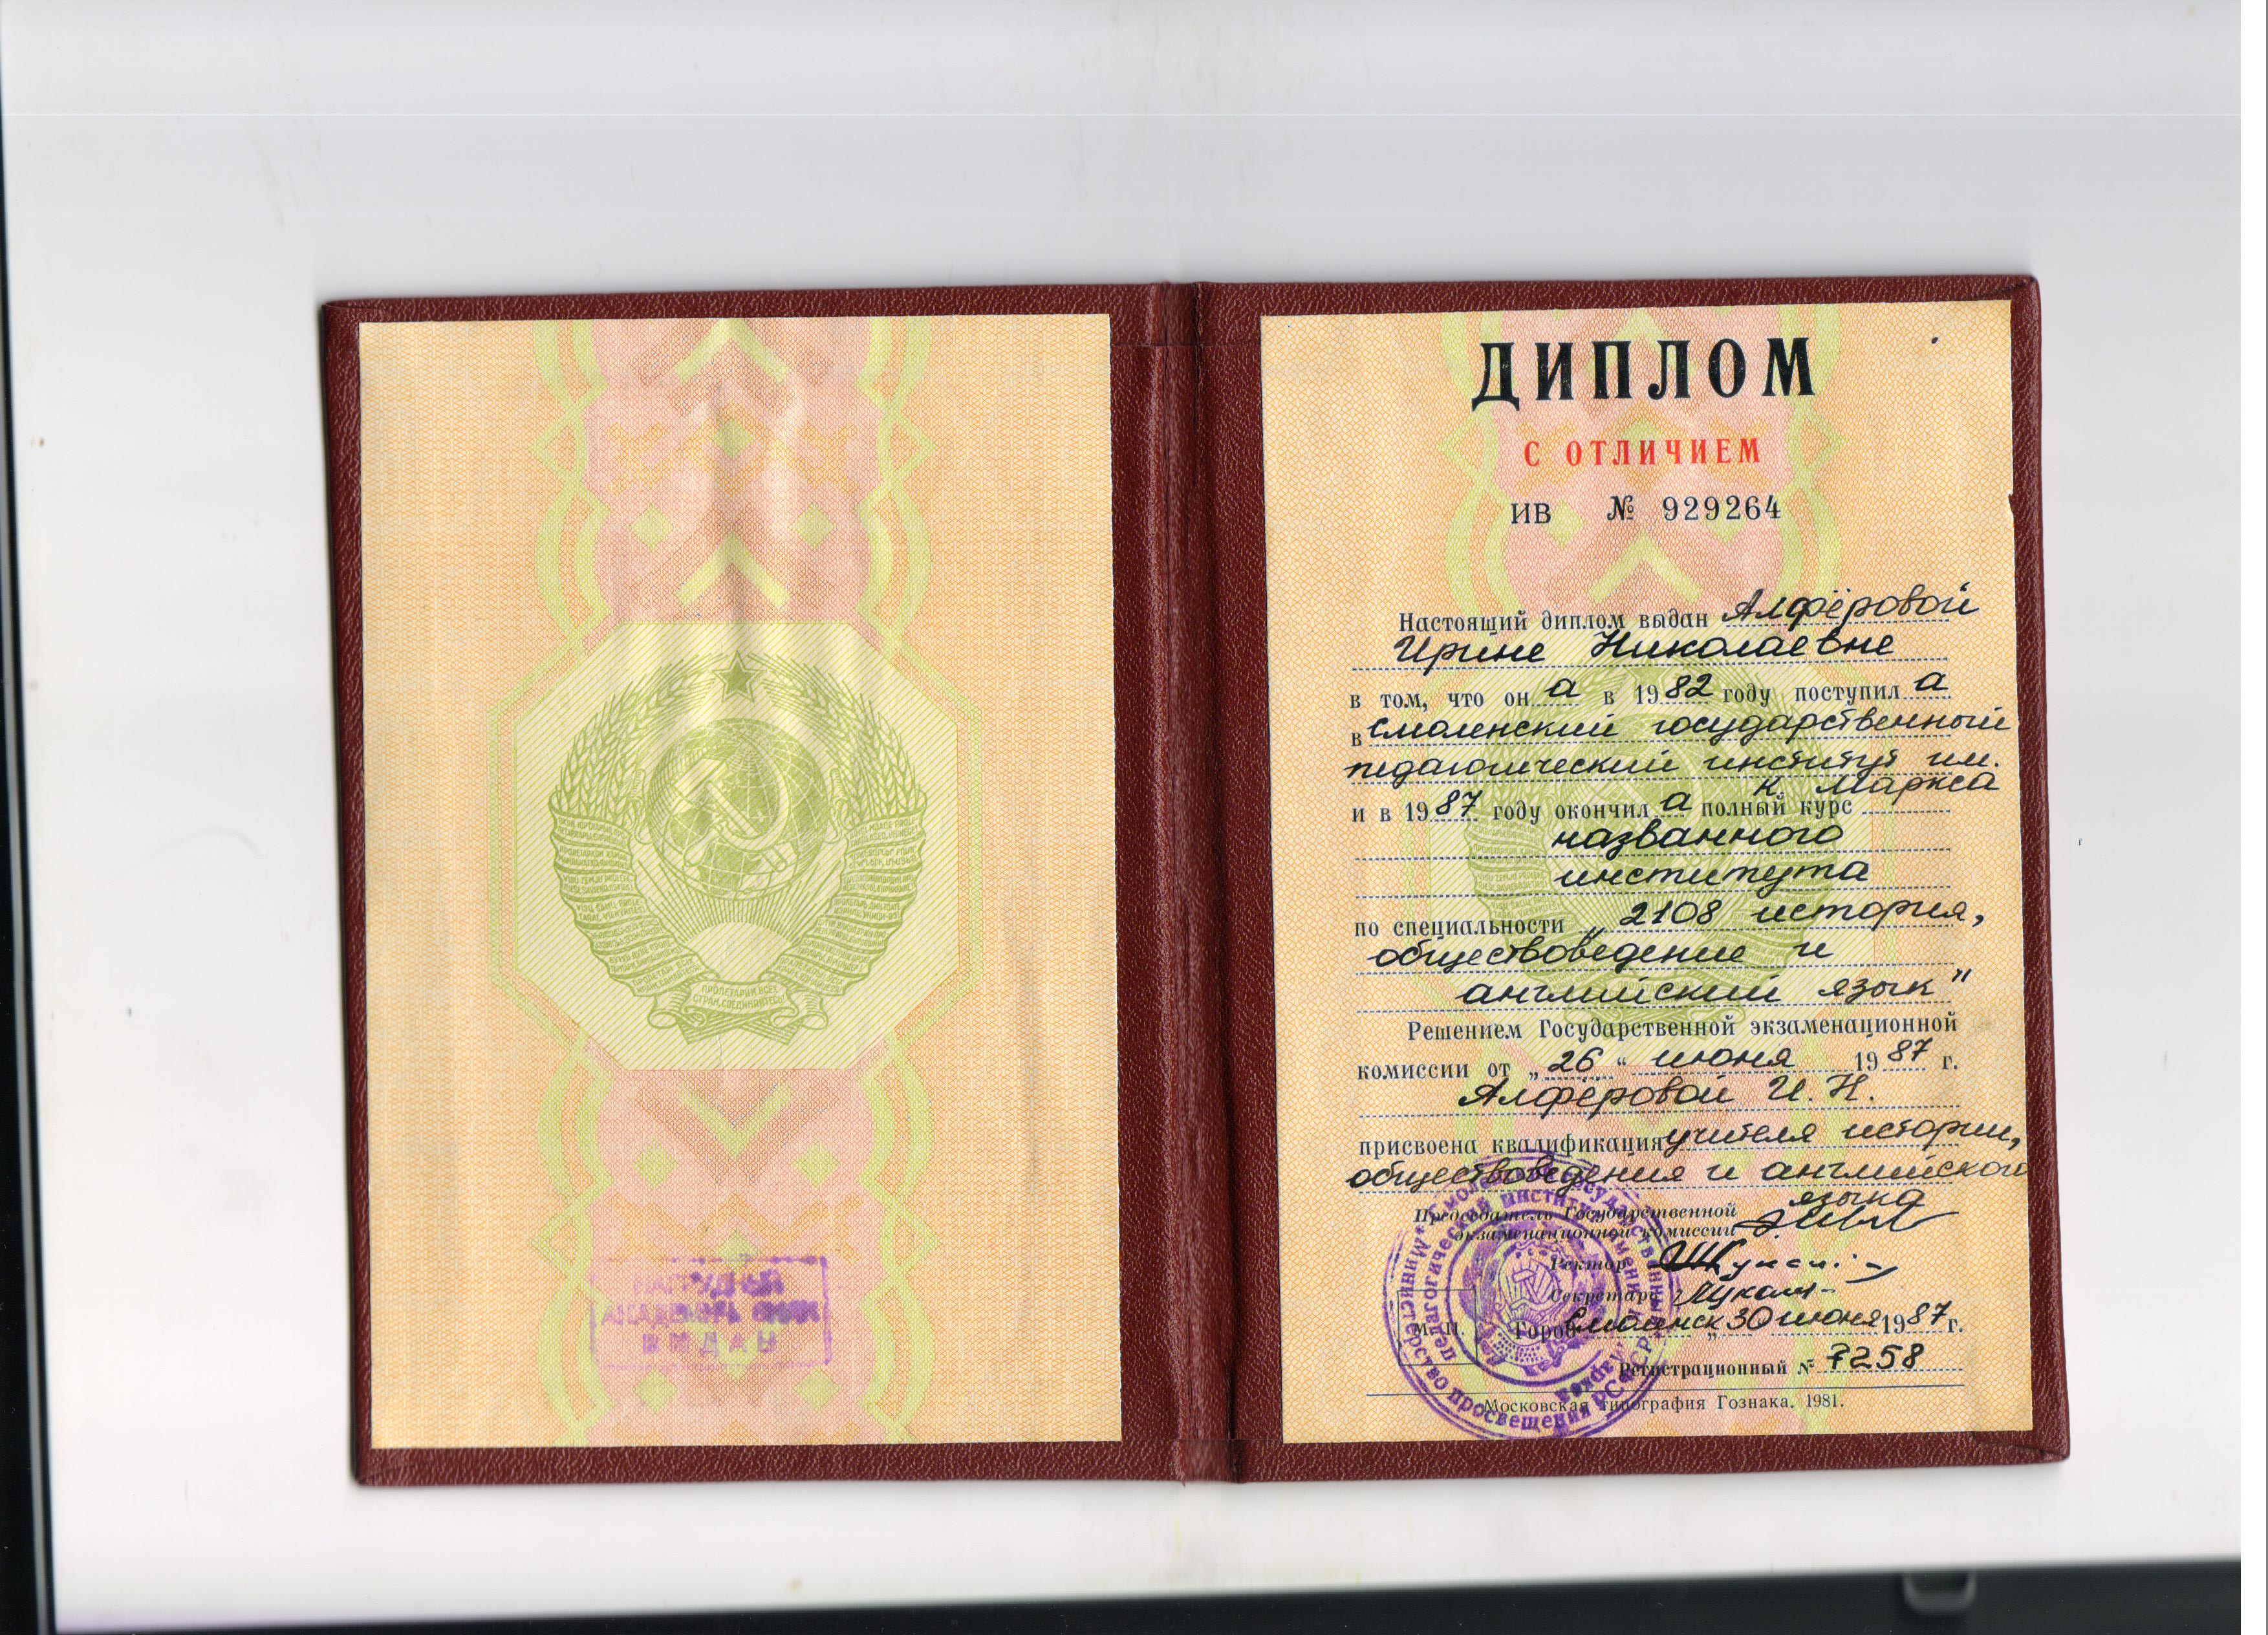 ПРОЛЕТАРИИ ВСЕХ
СТРАН, СОЕДИНЯЙТЕСЬ!
НАГРУДНОЙ
АКАДЕМИЧ. ЗНАК
ВЫДАН
ДИПЛОМ
С ОТЛИЧИЕМ
ИВ № 929264
Настоящий диплом выдан Алфёровой
Ирине Николаевне
в том, что он а в 1982 году поступил а
в Смоленский государственный
педагогический институт им.
К. Маркса
и в 1987 году окончил а полный курс
названного
института
по специальности „2108 история,
обществоведение и
английский язык"
Решением Государственной экзаменационной
комиссии от „26“ июня 1987 г.
Алфёровой И. Н.
присвоена квалификация учителя истории,
обществоведения и английского
языка
Председатель Государственной
экзаменационной комиссии
Ректор
Секретарь
М. П. Город Смоленск „30 июня 1987 г.
Регистрационный № 7258
Московская типография Гознака. 1981.
Министерство просвещения РСФСР
Смоленский государственный
педагогический институт имени
Карла Маркса